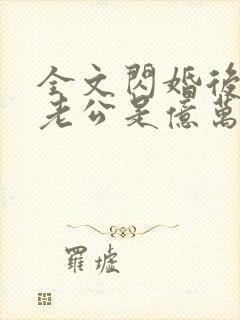 全文閃婚後
老公是億萬
羅墟